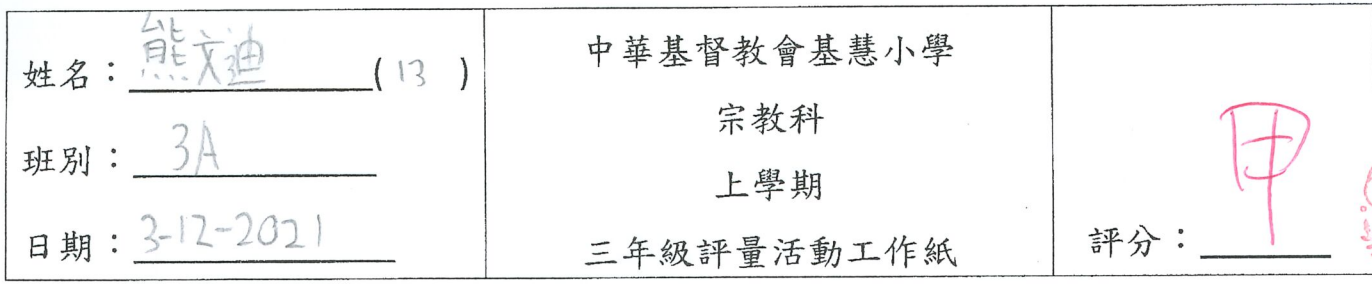 姓名：熊文迪 ( 13 )
班別：3A
日期：3-12-2021
中華基督教會基慧小學
宗教科
上學期
三年級評量活動工作紙
評分：甲